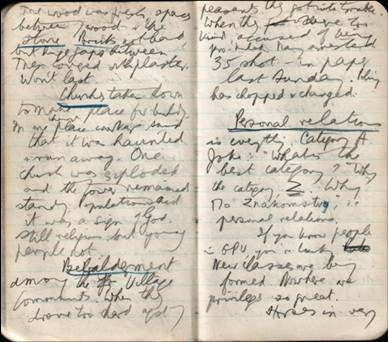 The wood was
between wood & the
stove. Bricks not hard
but huge gaps between
They covered with plaster.
Won't last
Churches taken down
to make place for building
In one place worker said
that it was haunted
& ran away. One
church was exploded
and the tower remained
standing. Population said
it was a sign of God.
Still religious but young
people not.
Bewilderment
among the Village
Communists. When they
drove too hard against
peasants they got into trouble
When they were too
kind, accused of being
35 shot - in paper
last Sunday. Policy
has chopped & changed.
Personal relations
is everything. Category A
Joke: "What is the
best category?" Why
the category Z. Why
Po Znakomstvu, i.e.
personal relations.
If you know people
in GPU, you're lucky
New classes are being
formed. Nowhere are
privileges so great.
Horses in very